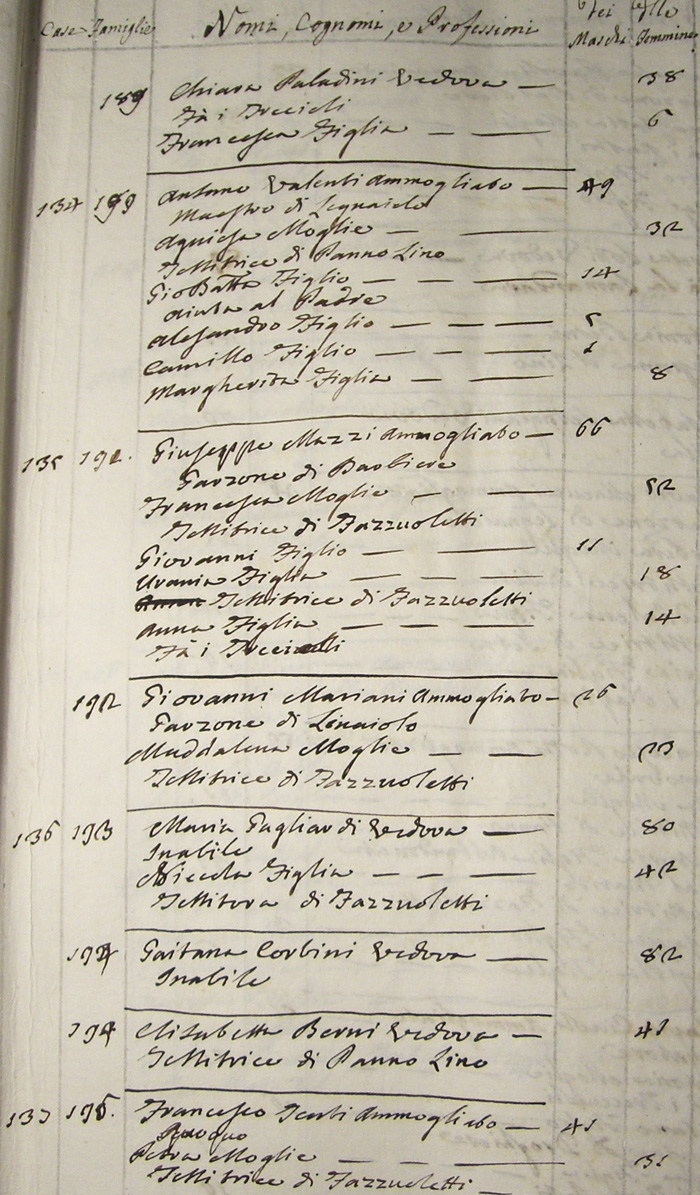 Case Famiglie Nomi, Cognomi, e Professioni Maschi Femmine
189 Chiara Paladini Vedova — 38
Fà i Treccioli
Francesca Figlia — — 6
134 Antonio Valenti Ammogliato — 49
Maestro di Legnaiolo
Agniesa Moglie — — 32
Tessitrice di Panno Lino
Gio Batta Figlio — — 14
aiuta al Padre
Alesandro Figlio — — — 5
Camillo Figlio — — — 1
Margherita Figlia — — 8
135 191. Giuseppe Mazzi Ammogliato — 66
Garzone di Barbiere
Francesca Moglie — — 52
Tessitrice di Fazzuoletti
Giovanni Figlio — — 11
Urania Figlia — — — 18
Tessitrice di Fazzuoletti
Anna Figlia — — — 14
Fà i
192 Giovanni Mariani Ammogliato — 26
Garzone di Linaiolo
Maddalena Moglie — — 23
Tessitrice di Fazzuoletti
136 193 Maria Gagliardi Vedova — 80
Inabile
Niccola Figlia — — — 42
di Fazzuoletti
Gaitana Corbini Vedova — 82
Inabile
194 Elisabetta Berni Vedova — 41
Tessitrice di Panno Lino
137 195. Francesco Ammogliato — 41
Petra Moglie — — — 31
Tessitrice di Fazzuoletti —